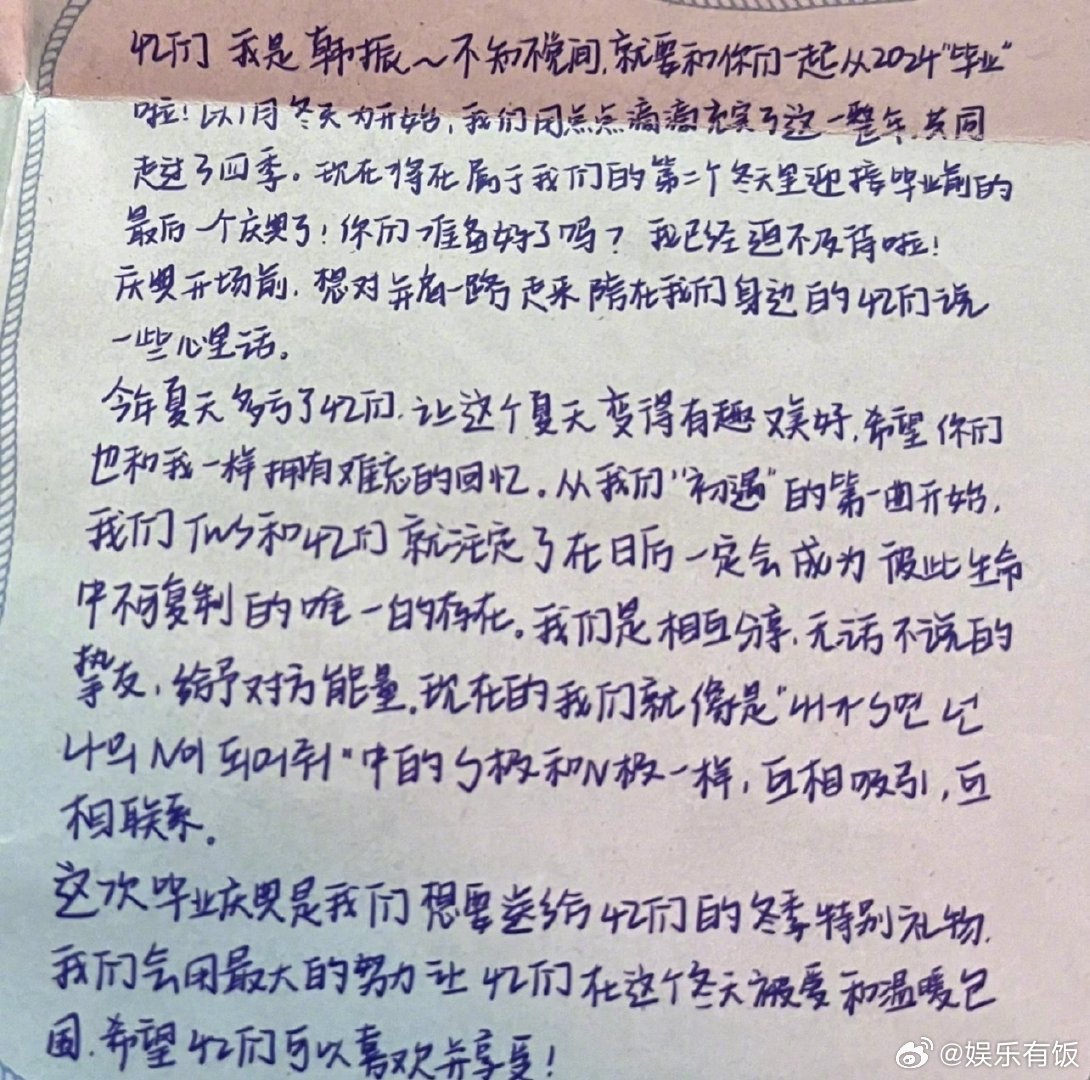 42们 我是韩振～不知不觉间,就要和你们一起从2024"毕业"
啦！以1月冬天为开始,我们用点点滴滴充实了这一整年,共同
走过了四季。现在将在属于我们的第二个冬天里迎接毕业前的
最后一个庆典了！你们准备好了吗？我已经迫不及待啦！
庆典开场前,想对并肩一路走来陪在我们身边的42们说
一些心里话。
今年夏天多亏了42们,让这个夏天变得有趣又美好,希望你们
也和我一样拥有难忘的回忆。从我们"初遇"的第一曲开始,
我们TWS和42们就注定了在日后一定会成为彼此生命
中不可复制的唯一的存在。我们是相互分享,无话不说的
挚友,给予对方能量。现在的我们就像是"내가 S면 넌
나의 N이 되어줘"中的S极和N极一样,互相吸引,互
相联系。
这次毕业庆典是我们想要送给42们的冬季特别礼物,
我们会用最大的努力让42们在这个冬天被爱和温暖包
围,希望42们可以喜欢并享受！
@娱乐有饭